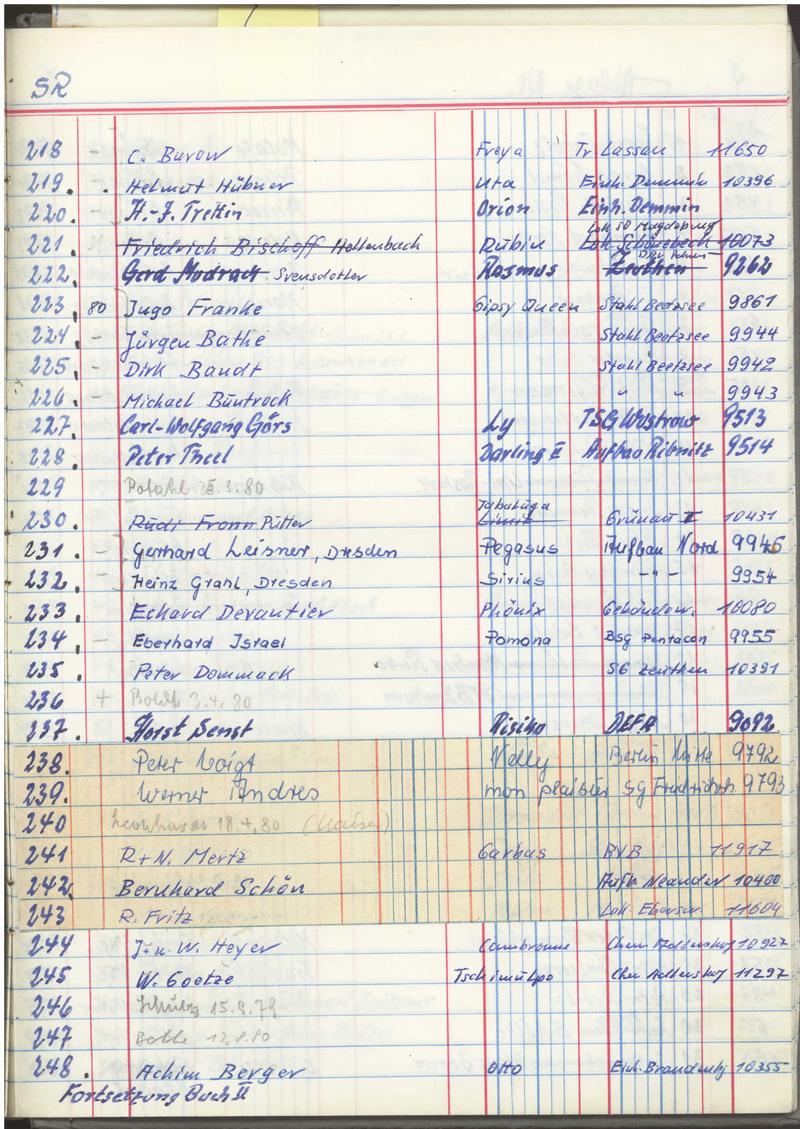 SR
218 - C. Burow Freya Tr Lassan 11650
219. . Helmut Hübner Uta Einh. Demmin 10396
220. - H.-J. Trettin Orion Einh. Demmin
Lok SO Magdeburg
221. Friedrich Bischoff Hollenbach Rubin Lok Schönebeck 10073
222. Gerd Modrack Svensdotter Rasmus Zeuthen 9262
223. 80 Ingo Franke Gipsy Queen Stahl Beetzsee 9861
224. - Jürgen Bathe Stahl Beetzsee 9944
225. - Dirk Bandt Stahl Beetzsee 9942
226. - Michael Büntrock " " 9943
227. Carl-Wolfgang Görs Ly TSG Wustrow 9513
228. Peter Theel Darling II Aufbau Ribnitz 9514
229 80
Tabaluga
230. Rudi Fromm Pütter Grünau II 10431
231. - Gerhard Leisner, Dresden Pegasus Aufbau Nord 9946
232. - Heinz Grahl, Dresden Sirius - " - 9954
233. Eckard Devantier Phönix Gebäudew. 10080
234. - Eberhard Israel Pomona Bsg Pentacon 9955
235. Peter Dommack SG Zeuthen 10391
236 + 3.4.80
237. Horst Senst Risiko DEFA 9092
238. Peter Voigt Nelly Berlin Mitte 9792
239. Werner Andres mon plaisier SG Friedrichsh. 9793
240 18.4.80
241 R+N. Mertz Garbas BVB 11917
242. Bernhard Schön Aufb. Neander 10400
243 R. Fritz Lok Ebersw. 11604
244 J. u. W. Heyer Cambronne Chem Adlershof 10927
245 W. Goetze Tschimulpo Che Adlershof 11297
246 Schulz 15.9.79
247 12.8.80
248. Achim Berger Otto Einh. Brandenbg 10355
Fortsetzung Buch II